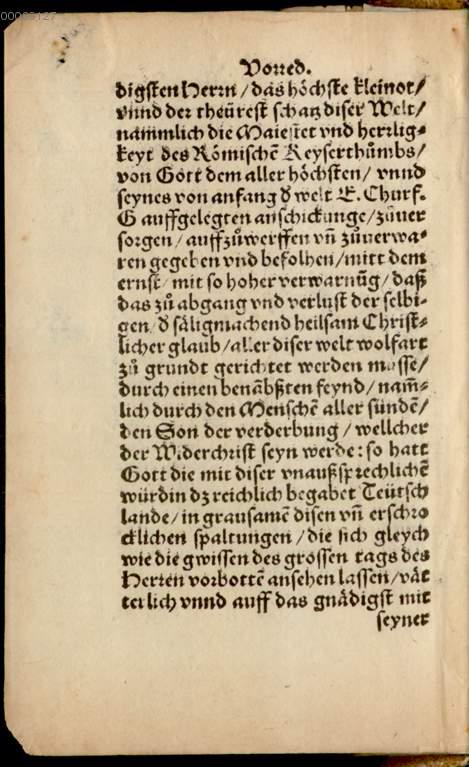 00008127
Vorred.
digsten Herrn / das höchste kleinot /
vnnd der theürest schatz diser Welt /
nämmlich die Maiestet vnd herrlig⸗
keyt des Römischē Keyserthůmbs /
von Gott dem aller höchsten / vnnd
seynes von anfang d̕ welt E. Churf.
G auffgelegten anschickunge / zůuer
sorgen / auffzůwerffen vn̄ zůuerwa⸗
ren gegeben vnd befolhen / mitt dem
ernst / mit so hoher verwarnūg / daß
das zů abgang vnd verlust der selbi⸗
gen / d̕ säligmachend heilsam Christ⸗
licher glaub / aller diser welt wolfart
zů grundt gerichtet werden mosse /
durch einen benābßten feynd / nam̄⸗
lich durch den Menschē aller sündē /
den Son der verderbung / wellcher
der Widerchrist seyn werde : so hatt
Gott die mit diser vnaußsprechlichē
würdin dz reichlich begabet Teütsch
lande / in grausamē disen vn̄ erschro
cklichen spaltungen / die sich gleych
wie die gwissen des grossen tags des
Herren vorbottē ansehen lassen / vät
terlich vnnd auff das gnädigst mit
seyner